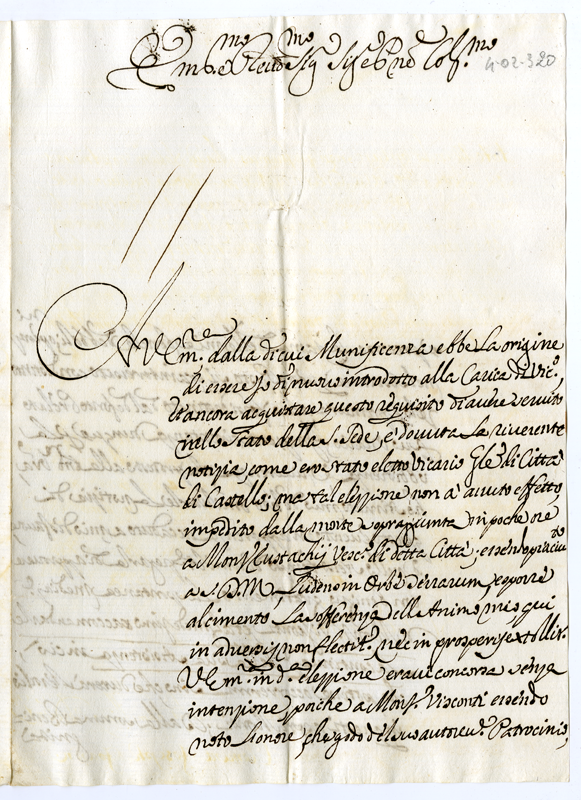 Em.mo e Rev.mo Sig.r Sig.r e P.ron Col.mo
4-02-320
A V. Em.za dalla di cui Munificenza ebbe la origine
di essere Jo di nuovo introdotto alla Carica di Vic.o
et ancora acquistare questo requisito di avere servito
nello Stato della S. Sede, è dovuta la riverente
notizia, come ero stato eletto Vicario Gñle di Città
di Castello; ma tal elezzione non à avuto effetto
impedito dalla morte sopragiunta in poche ore
a Mons.r Eustachij Vesc.o di detta Città; essendo piaciuto
a S. D. M. ludens in Orbe terrarum, esporre
al cimento la sofferenza dell'Animo mio, qui
in adversis non flectit.r, nec in prosperis extollit.r
V. Em.za in d.a elezzione eravi concorsa senza
intenzione, poiche a Mons.r Visconti essendo
noto l'onore, che godo del suo autorev.e Patrocinio,